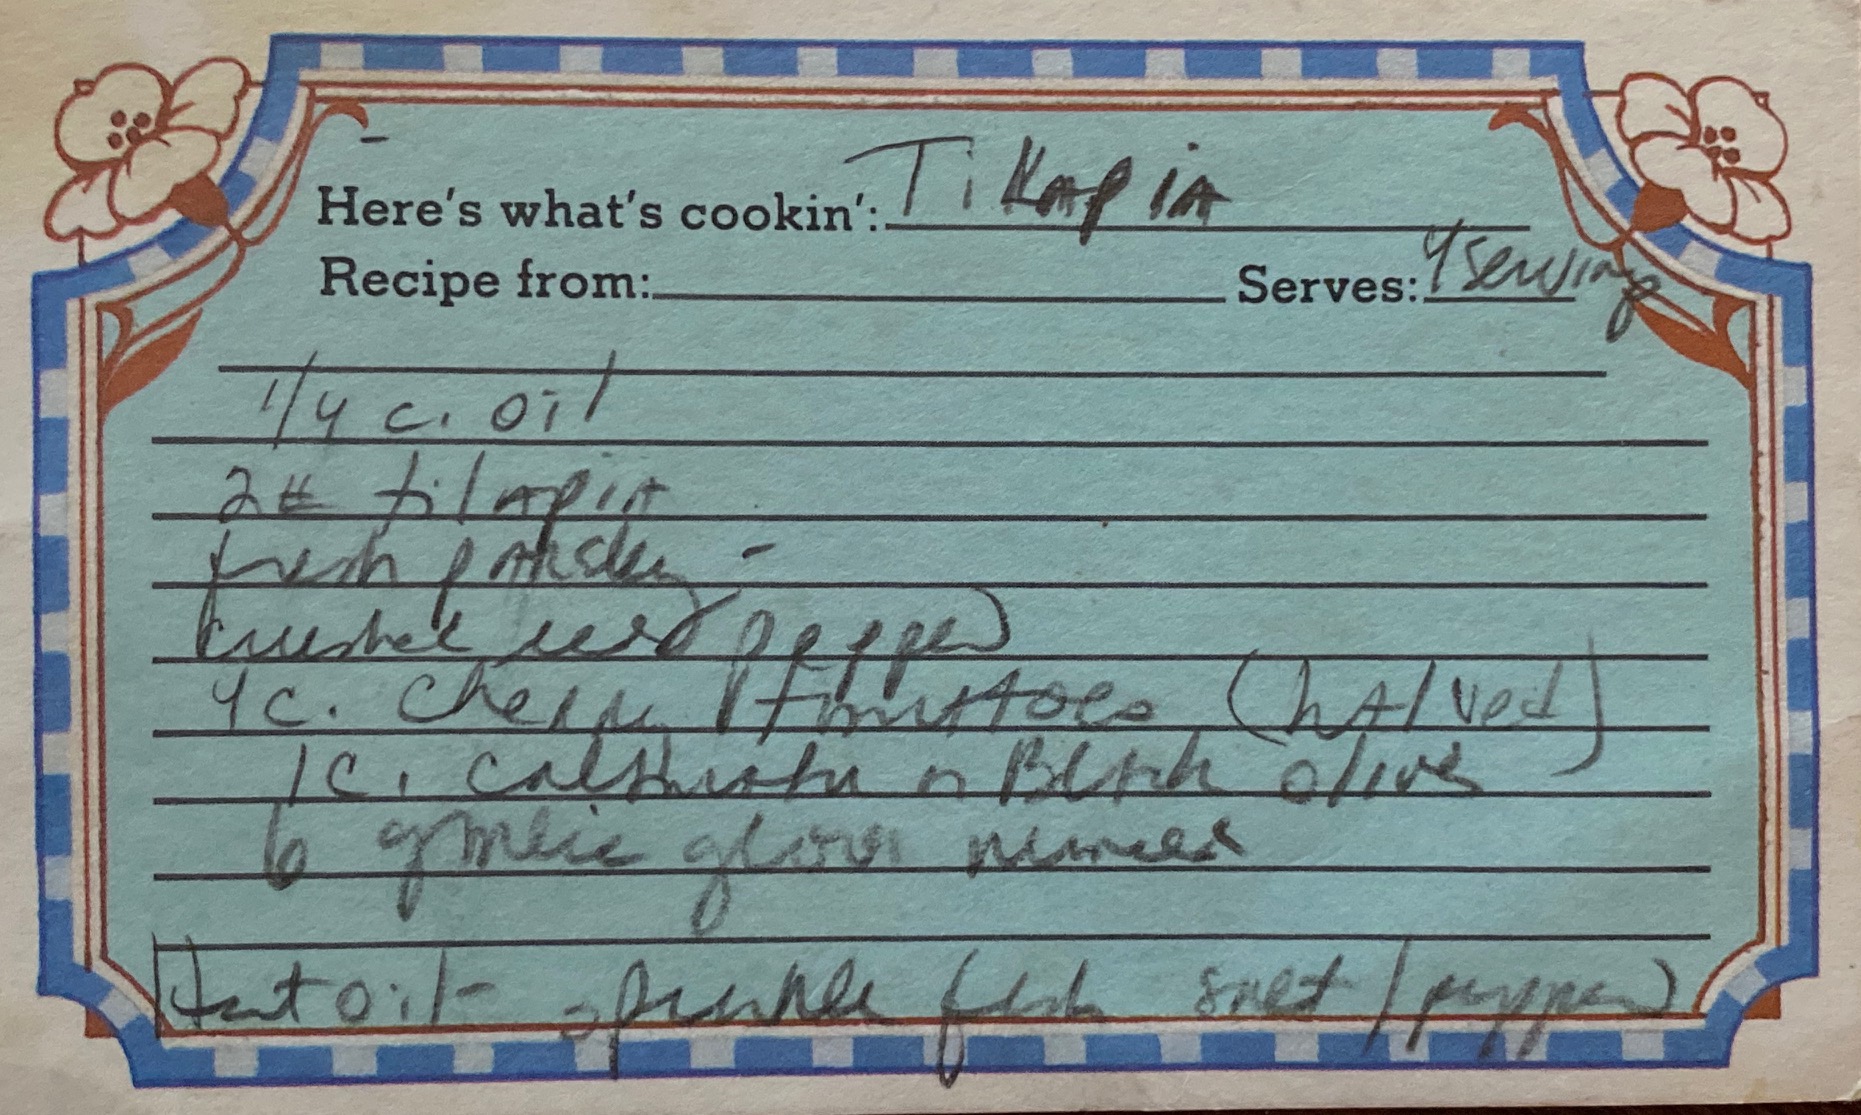 Here's what's cookin': Tilapia
Recipe from: Serves: 4 serving
1/4 c. oil
2# tilapia
fresh parsley -
crushed red pepper
4 c. cherry tomatoes (halved)
1 c. calstrata or Black olives
6 garlic gloves minced
Heat oil - sprinkle fish salt / pepper